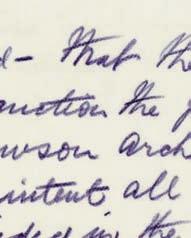 d - that the
nction the
wson Arch
intent all
ided in the